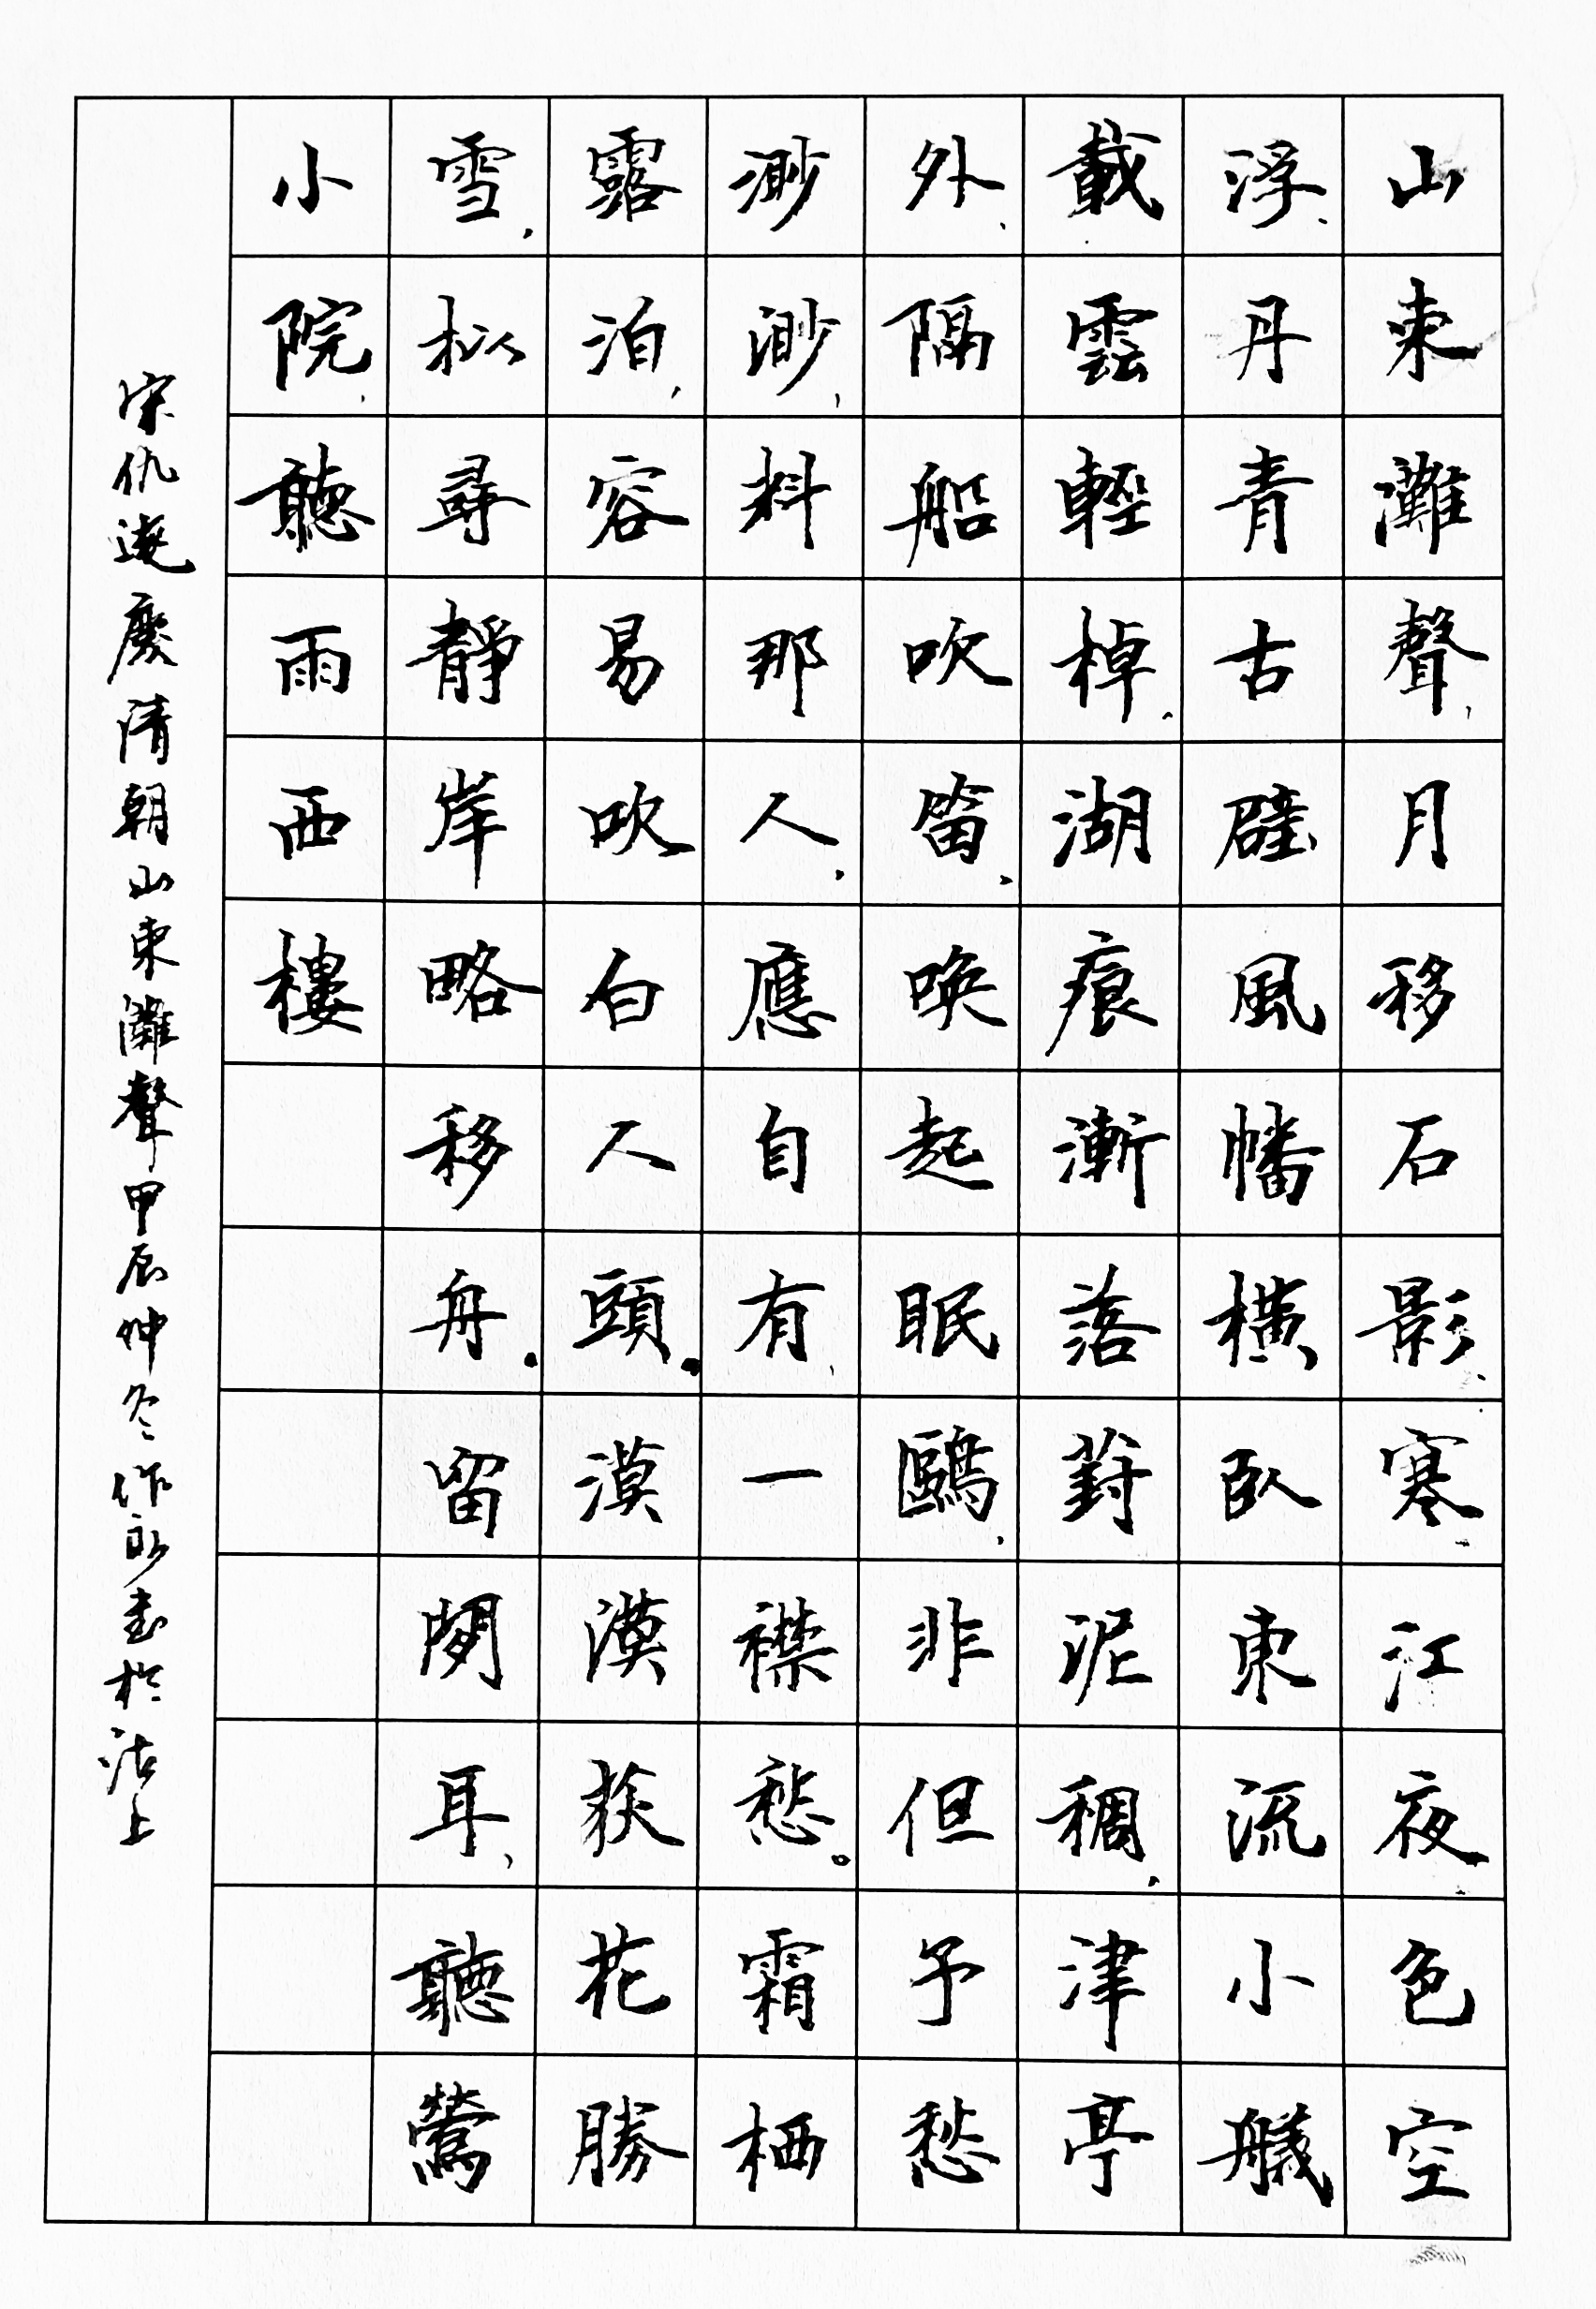 山東灘聲、月移石影、寒江夜色空
浮、丹青古壁、風幡橫臥東流小艤
載雲輕棹、湖痕漸落葑泥稠、津亭
外、隔船吹笛、喚起眠鷗、非但予愁
渺渺、料那人、應自有、一襟愁。霜栖
露泊、容易吹白人頭。漠漠荻花勝
雪、松尋靜岸略移舟。留閒耳、聽鶯
小院、聽雨西樓
宋仇遠慶清朝山東灘聲甲辰仲冬作永書於沽上